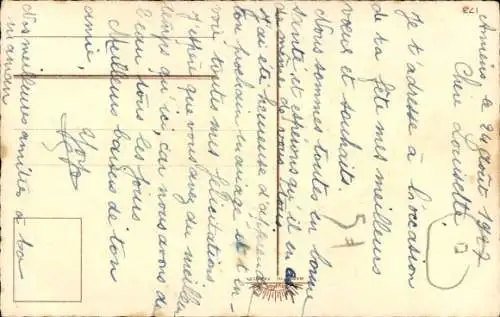 Amiens le 24 Août 1947
Chère Louisette
Je t'adresse à l'occasion
de ta fête mes meilleurs
voeux et souhaits.
Nous sommes toutes en bonne
santé et espérons qu'il en est
de même de vous tous.
J'ai été heureuse d'apprendre
ton prochain mariage et t'en-
voie toutes mes félicitations
J'espère que vous avez du meilleur
temps qu'ici, car nous avons de
l'eau tous les jours
Meilleurs baisers de ton
amie,
Nos meilleures amitiés à ta
maman
173
57